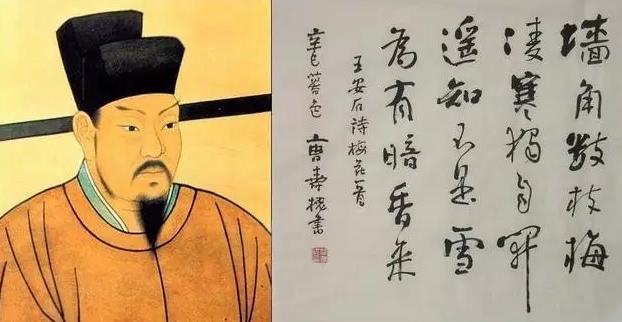 墙角数枝梅
凌寒独自开
遥知不是雪
為有暗香来
王安石诗梅花一首
辛巳 書